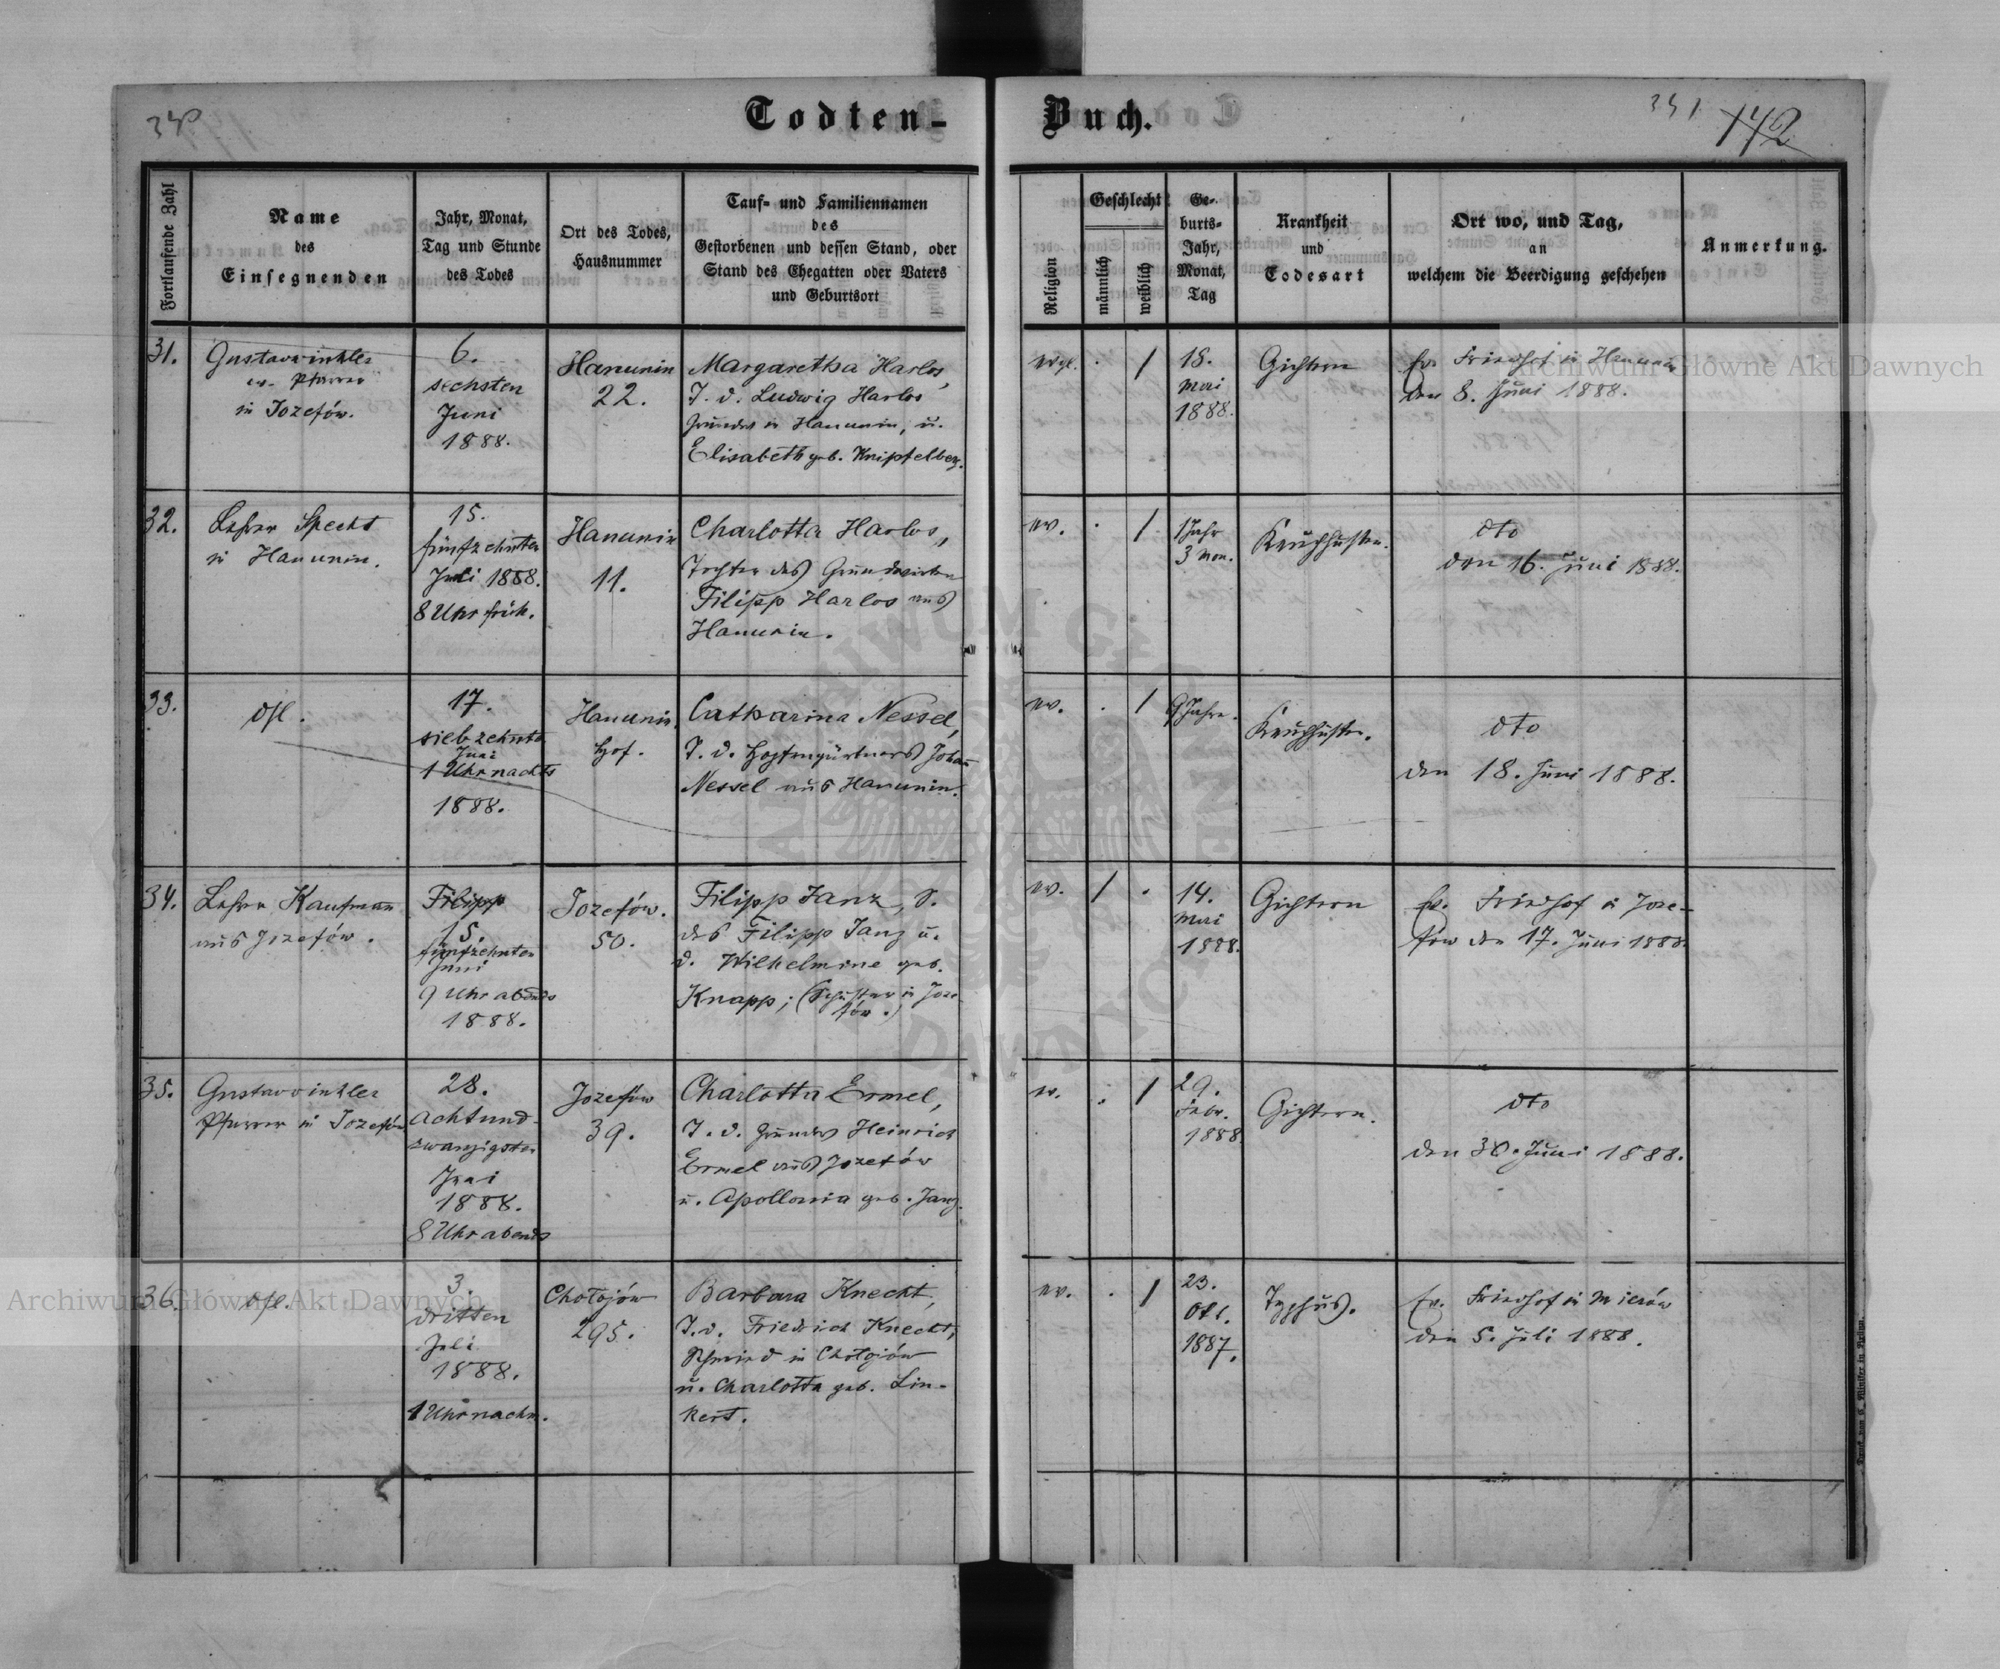 340
Todten-
Buch.
341
142
Fortlaufende Zahl
Name
des
Einsegnenden
Jahr, Monat,
Tag und Stunde
des Todes
Ort des Todes,
Hausnummer
Tauf- und Familiennamen
des
Gestorbenen und dessen Stand, oder
Stand des Ehegatten oder Vaters
und Geburtsort
Religion
Geschlecht
männlich
weiblich
Ge-
burts-
Jahr,
Monat,
Tag
Krankheit
und
Todesart
Ort wo, und Tag,
an
welchem die Beerdigung geschehen
Anmerkung.
31.
Gustav Winkler
ev. Pfarrer
in Jozefów.
6.
sechsten
Juni
1888.
Hanunin
22.
Margaretha Harlos,
T. d. Ludwig Harlos
in Hanunin, u.
Elisabeth geb. Knipfelberg.
evgl.
.
1
18.
Mai
1888.
Gichtern
Ev. Friedhof in Hanunin
den 8. Juni 1888.
32.
Lehrer Specht
in Hanunin.
15.
fünfzehnten
Juli 1888.
8 Uhr früh.
Hanunin
11.
Charlotta Harlos,
Tochter des Grundwirten
Filipp Harlos aus
Hanunin.
ev.
.
1
1 Jahr
3 Mon.
Keuchhusten.
dto
den 16. Juni 1888.
33.
dsl.
17.
siebzehnte
Juni
1 Uhr nachts
1888.
Hanunin,
Hof.
Catharina Nessel,
T. d. Johann
Nessel aus Hanunin.
ev.
.
1
9 Jahre.
Keuchhusten.
dto
den 18. Juni 1888.
34.
Lehrer Kaufmann
aus Jozefów.
Filipp
15.
fünfzehnten
Juni
9 Uhr abends
1888.
Jozefów.
50.
Filipp Janz, S.
des Filipp Janz u.
d. Wilhelmine geb.
Knapp; (Schuster in Joze-
fów.)
ev.
1
.
14.
Mai
1888.
Gichtern
Ev. Friedhof in Joze-
fów den 17. Juni 1888.
35.
Gustav Winkler
Pfarrer in Jozefów
28.
achtund-
zwanzigsten
Juni
1888.
8 Uhr abends
Jozefów
39.
Charlotta Ermel,
T. d. Heinrich
Ermel aus Jozefów
u. Apollonia geb. Janz.
ev.
.
1
29.
Febr.
1888
Gichtern.
dto
den 30. Juni 1888.
36.
dsl.
3.
dritten
Juli
1888.
1 Uhr nachm.
Chołojów
295.
Barbara Knecht,
T. d. Friedrich Knecht,
Schmied in Chołojów
u. Charlotta geb. Lin-
kert.
ev.
.
1
23.
Okt.
1887.
Typhus.
Ev. Friedhof in Mierów
den 5. Juli 1888.
Archiwum Główne Akt Dawnych
Archiwum Główne Akt Dawnych
ARCHIWUM GŁÓWNE AKT DAWNYCH